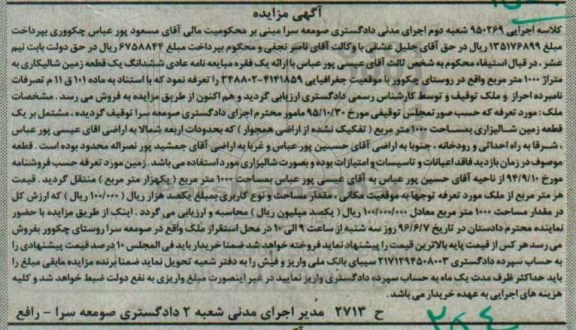 آگهی مزایده
کلاسه اجرایی ۹۵۰۲۶۹ شعبه دوم اجرای مدنی دادگستری صومعه سرا مبنی بر محکومیت مالی آقای مسعود پور عباس چکووری بپرداخت
مبلغ ۱۳۵۱۷۶۸۹۹ ریال در حق آقای جلیل عشقی با وکالت آقای ناصر نجفی و محکوم بپرداخت مبلغ ۶۷۵۸۸۴۴ ریال در حق دولت بابت نیم
عشر . در قبال استیفاء محکوم به شخص ثالث آقای عیسی پور عباس با ارائه یک فقره مبایعه نامه عادی ششدانگ یک قطعه زمین شالیکاری به
متراژ ۱۰۰۰ متر مربع واقع در روستای چکوور با موقعیت جغرافیایی ۴۱۴۱۸۵۹-۳۴۸۸۰۲ را تعرفه نمود که با استناد به ماده ۱۰۱ ق ۱۱ م تصرفات
نامبرده احراز و ملک توقیف و توسط کارشناس رسمی دادگستری ارزیابی گردید و هم اکنون از طریق مزایده به فروش می رسد . مشخصات
ملک : مورد تعرفه که حسب صورتمجلس توقیفی مورخ ۹۵/۱۰/۳۰ مامور محترم اجرای دادگستری صومعه سرا توقیف گردیده . مشتمل بر یک
قطعه زمین شالیزاری بمساحت ۱۰۰۰ متر مربع ( تفکیک نشده از اراضی همجوار ) که بحدودات اربعه شمالا به اراضی آقای عیسی پور عباس
، شرقا به راه احداثی و رودخانه ، جنوبا به اراضی آقای حسین پور عباس و غربا به اراضی آقای جمشید پور نصراله محدود بوده است . قطعه
موصوف در زمان بازدید فاقد اعیانات و تاسیسات و امتیازات بوده و بصورت شالیزار مورد استفاده می باشد . زمین مورد تعرفه حسب فروشنامه
مورخ ۹۴/۹/۱۰ از ناحیه آقای حسین پور عباس به آقای عیسی پور عباس بمساحت ۱۰۰۰ متر مربع ( یکهزار متر مربع ) منتقل گردید . قیمت
هر متر مربع از ملک مورد تعرفه توجها به موقعیت مکانی ، مقدار مساحت و نوع کاربری بمبلغ یکصد هزار ریال (۱۰۰/۰۰۰ ریال ) که ارزش کل
در مقدار مساحت ۱۰۰۰ متر مربع معادل ۱۰۰/۰۰۰/۰۰۰ ریال ( یکصد میلیون ریال ) محاسبه و ارزیابی می گردد . اینک از طریق مزایده با حضور
نماینده محترم دادستان در تاریخ ۹۶/۶/۷ روز سه شنبه از ساعت ۹ الی ۱۰ در محل استقرار ملک واقع در صومعه سرا روستای چکوور بفروش
می رسد هر کس از قیمت پایه بالاترین قیمت را پیشنهاد نماید فروخته خواهد شد ضمنا خریدار باید فی المجلس ۱۰ درصد قیمت پیشنهادی را
به حساب سپرده دادگستری ۲۱۷۱۲۹۴۵۰۸۰۰۳ سیبای بانک ملی واریز و فیش را به دفتر شعبه تحویل نماید ضمنا برنده مزایده مابقی مبلغ را
باید حداکثر ظرف مدت یک ماه به حساب سپرده دادگستری واریز نمایید در غیر اینصورت مبلغ واریزی به نفع دولت ضبط خواهد شد و کلیه
هزینه های اجرایی به عهده خریدار می باشد .
ح ۲۷۱۳ مدیر اجرای مدنی شعبه ۲ دادگستری صومعه سرا – رافع